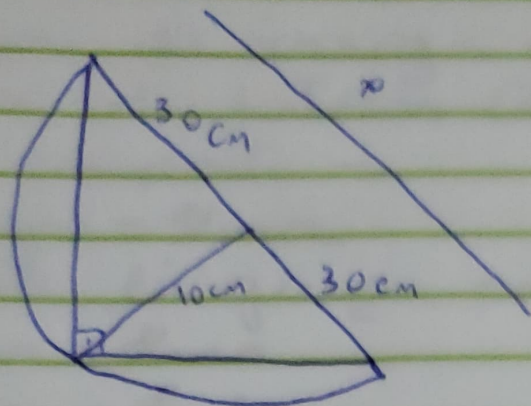 x
30cm
10cm
30cm